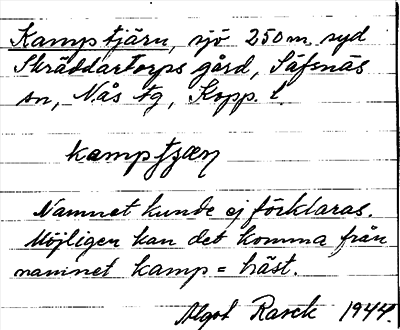 Kamptjärn, sjö 250 m syd
Skräddartorps gård, Säfsnäs
sn, Nås tg, Kopp. l.
kamptjæṇ
Namnet kunde ej förklaras.
Möjligen kan det komma från
namnet kamp = häst.
Algot Rasck 1944.